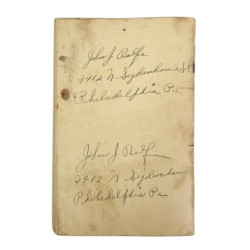 John J Balfe
2412 N Sydenham St
Philadelphia Pa
John J Balf
2412 N Sydenham
Philadelphia Pa